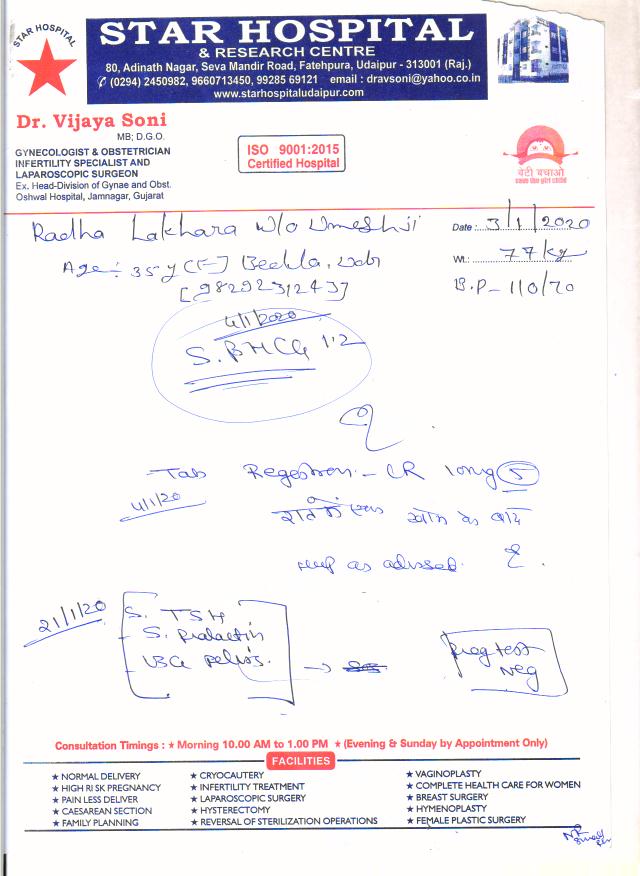 STAR HOSPITAL
STAR HOSPITAL
& RESEARCH CENTRE
80, Adinath Nagar, Seva Mandir Road, Fatehpura, Udaipur - 313001 (Raj.)
(0294) 2450982, 9660713450, 99285 69121 email : dravsoni@yahoo.co.in
www.starhospitaludaipur.com
Dr. Vijaya Soni
MB; D.G.O.
GYNECOLOGIST & OBSTETRICIAN
INFERTILITY SPECIALIST AND
LAPAROSCOPIC SURGEON
Ex. Head-Division of Gynae and Obst.
Oshwal Hospital, Jamnagar, Gujarat
ISO 9001:2015
Certified Hospital
बेटी बचाओ
save the girl child
Radha Lakhara W/o Umeshji
Date : 3/1/2020
Age :- 35 y (F) Bedla, Udr
Wt.: 77 kg
[9829231243]
B.P - 110/70
4/1/2020
S. BHCG 1.2
Tab Regestron - CR 10mg 5
4/1/20
रात में एक खाने के बाद
as advised.
21/1/20
S. TSH
S. Prolactin
USG pelvis.
Preg test
Neg
Consultation Timings : ★ Morning 10.00 AM to 1.00 PM ★ (Evening & Sunday by Appointment Only)
FACILITIES
★ NORMAL DELIVERY
★ HIGH RISK PREGNANCY
★ PAIN LESS DELIVER
★ CAESAREAN SECTION
★ FAMILY PLANNING
★ CRYOCAUTERY
★ INFERTILITY TREATMENT
★ LAPAROSCOPIC SURGERY
★ HYSTERECTOMY
★ REVERSAL OF STERILIZATION OPERATIONS
★ VAGINOPLASTY
★ COMPLETE HEALTH CARE FOR WOMEN
★ BREAST SURGERY
★ HYMENOPLASTY
★ FEMALE PLASTIC SURGERY